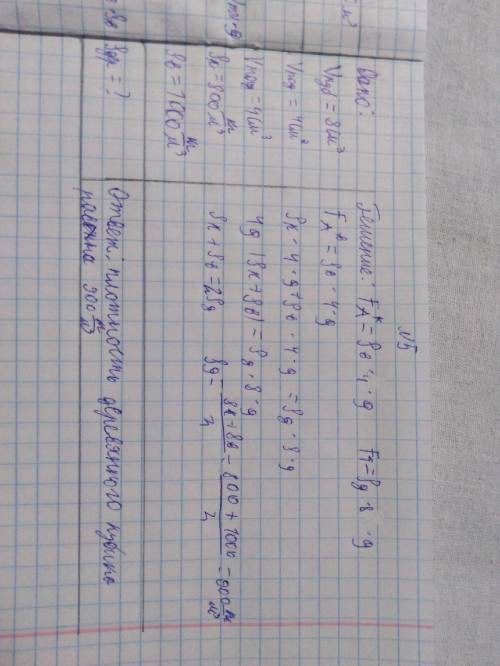 №5
Дано:
Vкуб = 8см³
Vпов = 4см³
Vпод = 4см³
ρк = 800 кг/м³
ρв = 1000 кг/м³
ρдр = ?
Решение: Fᴀᵏ = ρк · 4 · g Fт = ρд · 8 · g
Fᴀᵇ = ρв · 4 · g
ρк · 4 · g + ρв · 4 · g = ρд · 8 · g
4g (ρк + ρв) = ρд · 8 · g
ρк + ρв = 2ρд ρд = (ρк + ρв)/2 = (800 + 1000)/2 = 900 кг/м³
Ответ: плотность деревянного кубика
равна 900 кг/м³